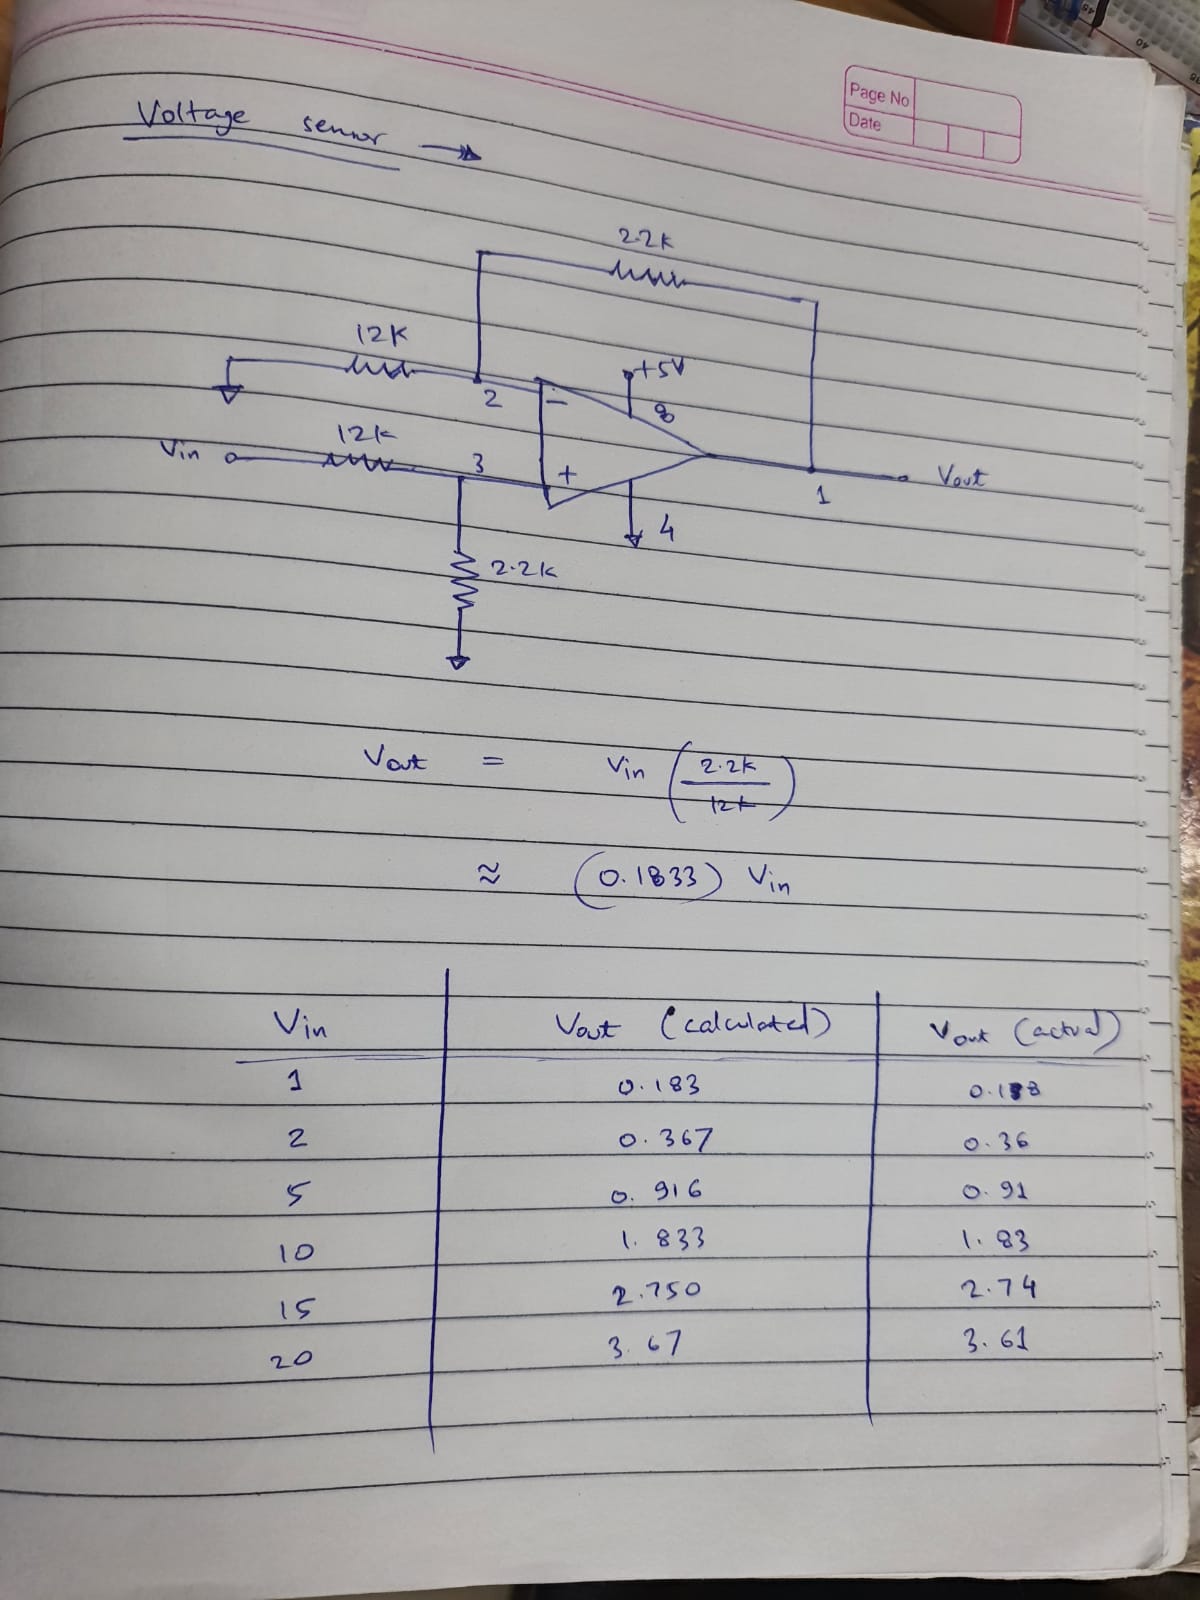 Page No
Date
Voltage sensor →
2.2K
12K
+5V
2
-
8
12K
Vin
3
+
Vout
1
4
2.2K
Vout = Vin (2.2K/12K)
≈ (0.1833) Vin
Vin Vout (calculated) Vout (actual)
1 0.183
2 0.367 0.36
5 0.916 0.91
10 1.833 1.83
15 2.750 2.74
20 3.67 3.61